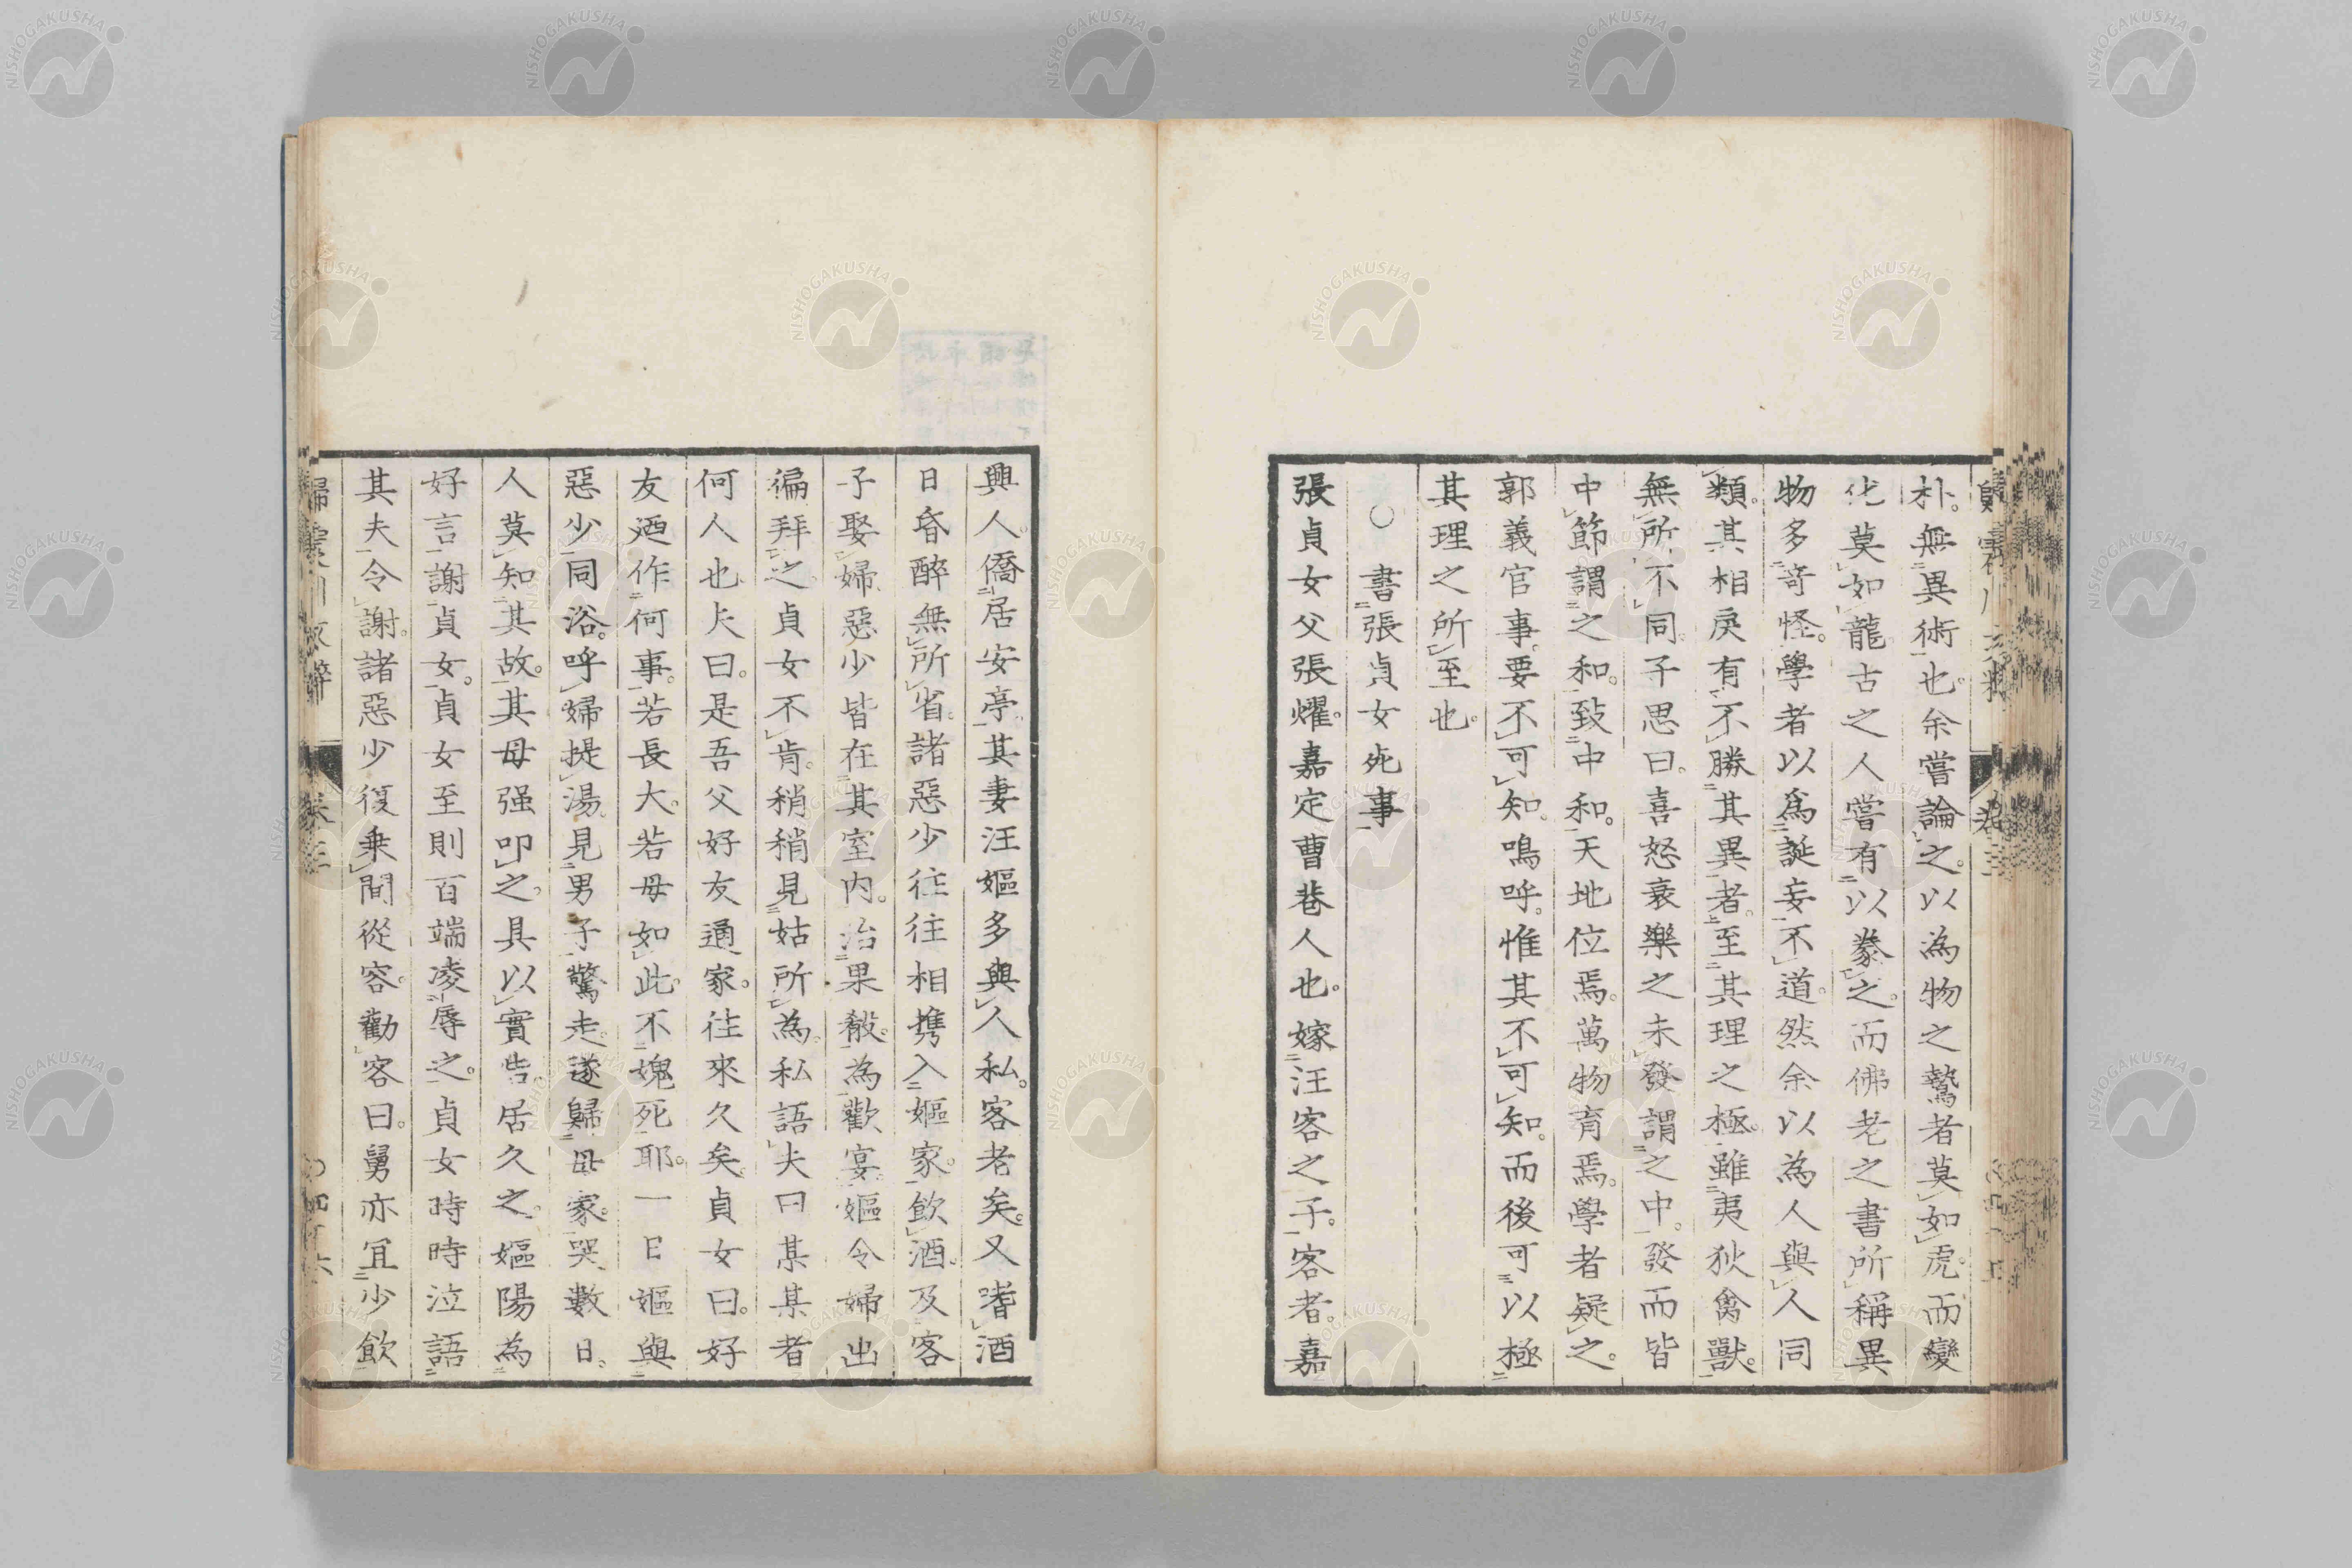 朴。無異術也。余嘗論之。以為物之鷙者莫如虎。而變
化莫如龍。古之人嘗有以豢之。而佛老之書所稱異
物多奇怪。學者以為誕妄不道。然余以為人與人同
類。其相戾有不勝其異者。至其理之極。雖夷狄禽獸。
無所不同。子思曰。喜怒哀樂之未發謂之中。發而皆
中節謂之和。致中和。天地位焉。萬物育焉。學者疑之。
郭義官事。要不可知。嗚呼。惟其不可知。而後可以極
其理之所至也。
○書張貞女死事
張貞女父張燿。嘉定曹巷人也。嫁汪客之子。客者。嘉
興人。僑居安亭。其妻汪嫗多與人私。客老矣。又嗜酒
日昏醉無所省。諸惡少往往相携入嫗家。飲酒。及客
子娶婦。惡少皆在其室內。治果殽。為歡宴。嫗令婦出
徧拜之。貞女不肯。稍稍見姑所為。私語夫曰某某者
何人也。夫曰。是吾父好友通家。往來久矣。貞女曰。好
友廼作何事。若長大。若母如此。不媿死耶。一日嫗與
惡少同浴。呼婦提湯。見男子驚走。遂歸母家。哭數日。
人莫知其故。其母强叩之。具以實告。居久之。嫗陽為
好言謝貞女。貞女至則百端凌辱之。貞女時時泣語
其夫令謝。諸惡少復乗間從容。勸客曰。舅亦宜少飲
卷三
NISHOGAKUSHA